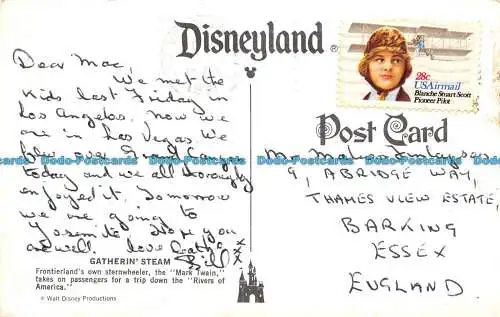 Disneyland®
28c
USAirmail
Blanche Stuart Scott
Pioneer Pilot
Post Card
Dear Mac,
We met the
kids last Friday in
Los Angeles. Now we
are in Las Vegas. We
flew over Grand Canyon
today and we all thoroughly
enjoyed it. Tomorrow
we are going to
Yosemite. Hope you
are well. love
Bill
9, ABRIDGE WAY,
THAMES VIEW ESTATE,
BARKING
ESSEX
ENGLAND
GATHERIN' STEAM
Frontierland's own sternwheeler, the "Mark Twain,"
takes on passengers for a trip down the "Rivers of
America."
© Walt Disney Productions
Dodo-Postcards Dodo-Postcards Dodo-Postcards Dodo-Postcards